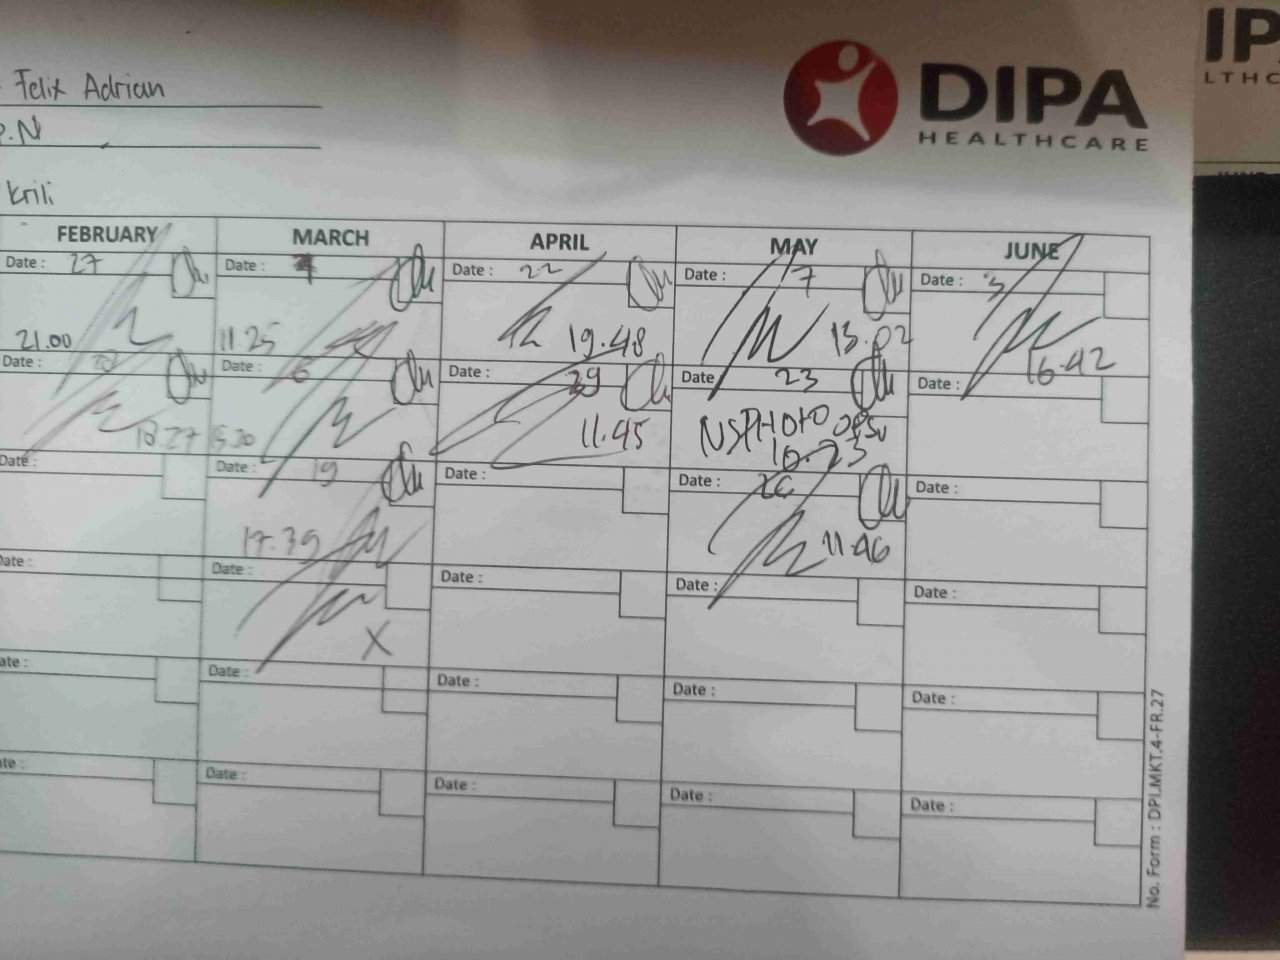 Felix Adrian
DIPA
HEALTHCARE
P.N
Krili
FEBRUARY MARCH APRIL MAY JUNE
Date : 27 Date : Date : 22 Date : 7 Date : 3
21.00 11.25 19.48 13.02 16.42
Date : Date : 6 Date : 29 Date 23 Date :
18.27 11.45 NSPHOTO
10.23
Date : Date : 19 Date : Date : Date :
17.39 11.46
Date : Date : Date : Date : Date :
X
Date : Date : Date : Date : Date :
Date : Date : Date : Date :
No. Form : DPI.MKT.4-FR.27
IP
LTHC